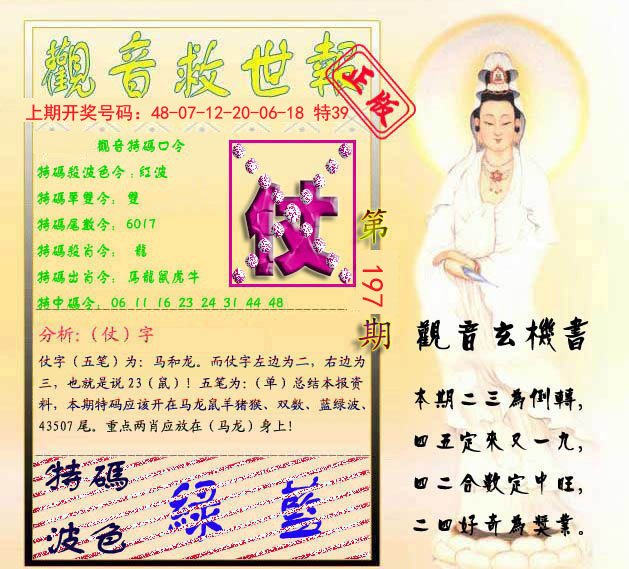 觀音救世報
正版
上期开奖号码：48-07-12-20-06-18 特39
觀音特碼口令
特碼殺波色令：紅波
特碼單雙令： 雙
特碼尾數令： 6017
特碼殺肖令： 龍
特碼出肖令： 馬龍鼠虎牛
特中碼令： 06 11 16 23 24 31 44 48
仗
第197期
分析：（仗）字
仗字（五笔）为：马和龙。而仗字左边为二，右边为
三，也就是说23（鼠）！五笔为：（单）总结本报资
料，本期特码应该开在马龙鼠羊猪猴、双数、蓝绿波、
43507尾。重点两肖应放在（马龙）身上！
特碼
波色
綠 藍
觀音玄機書
本期二三為倒轉，
四五定來又一九，
四二合數定中旺，
二四好奇為獎業。